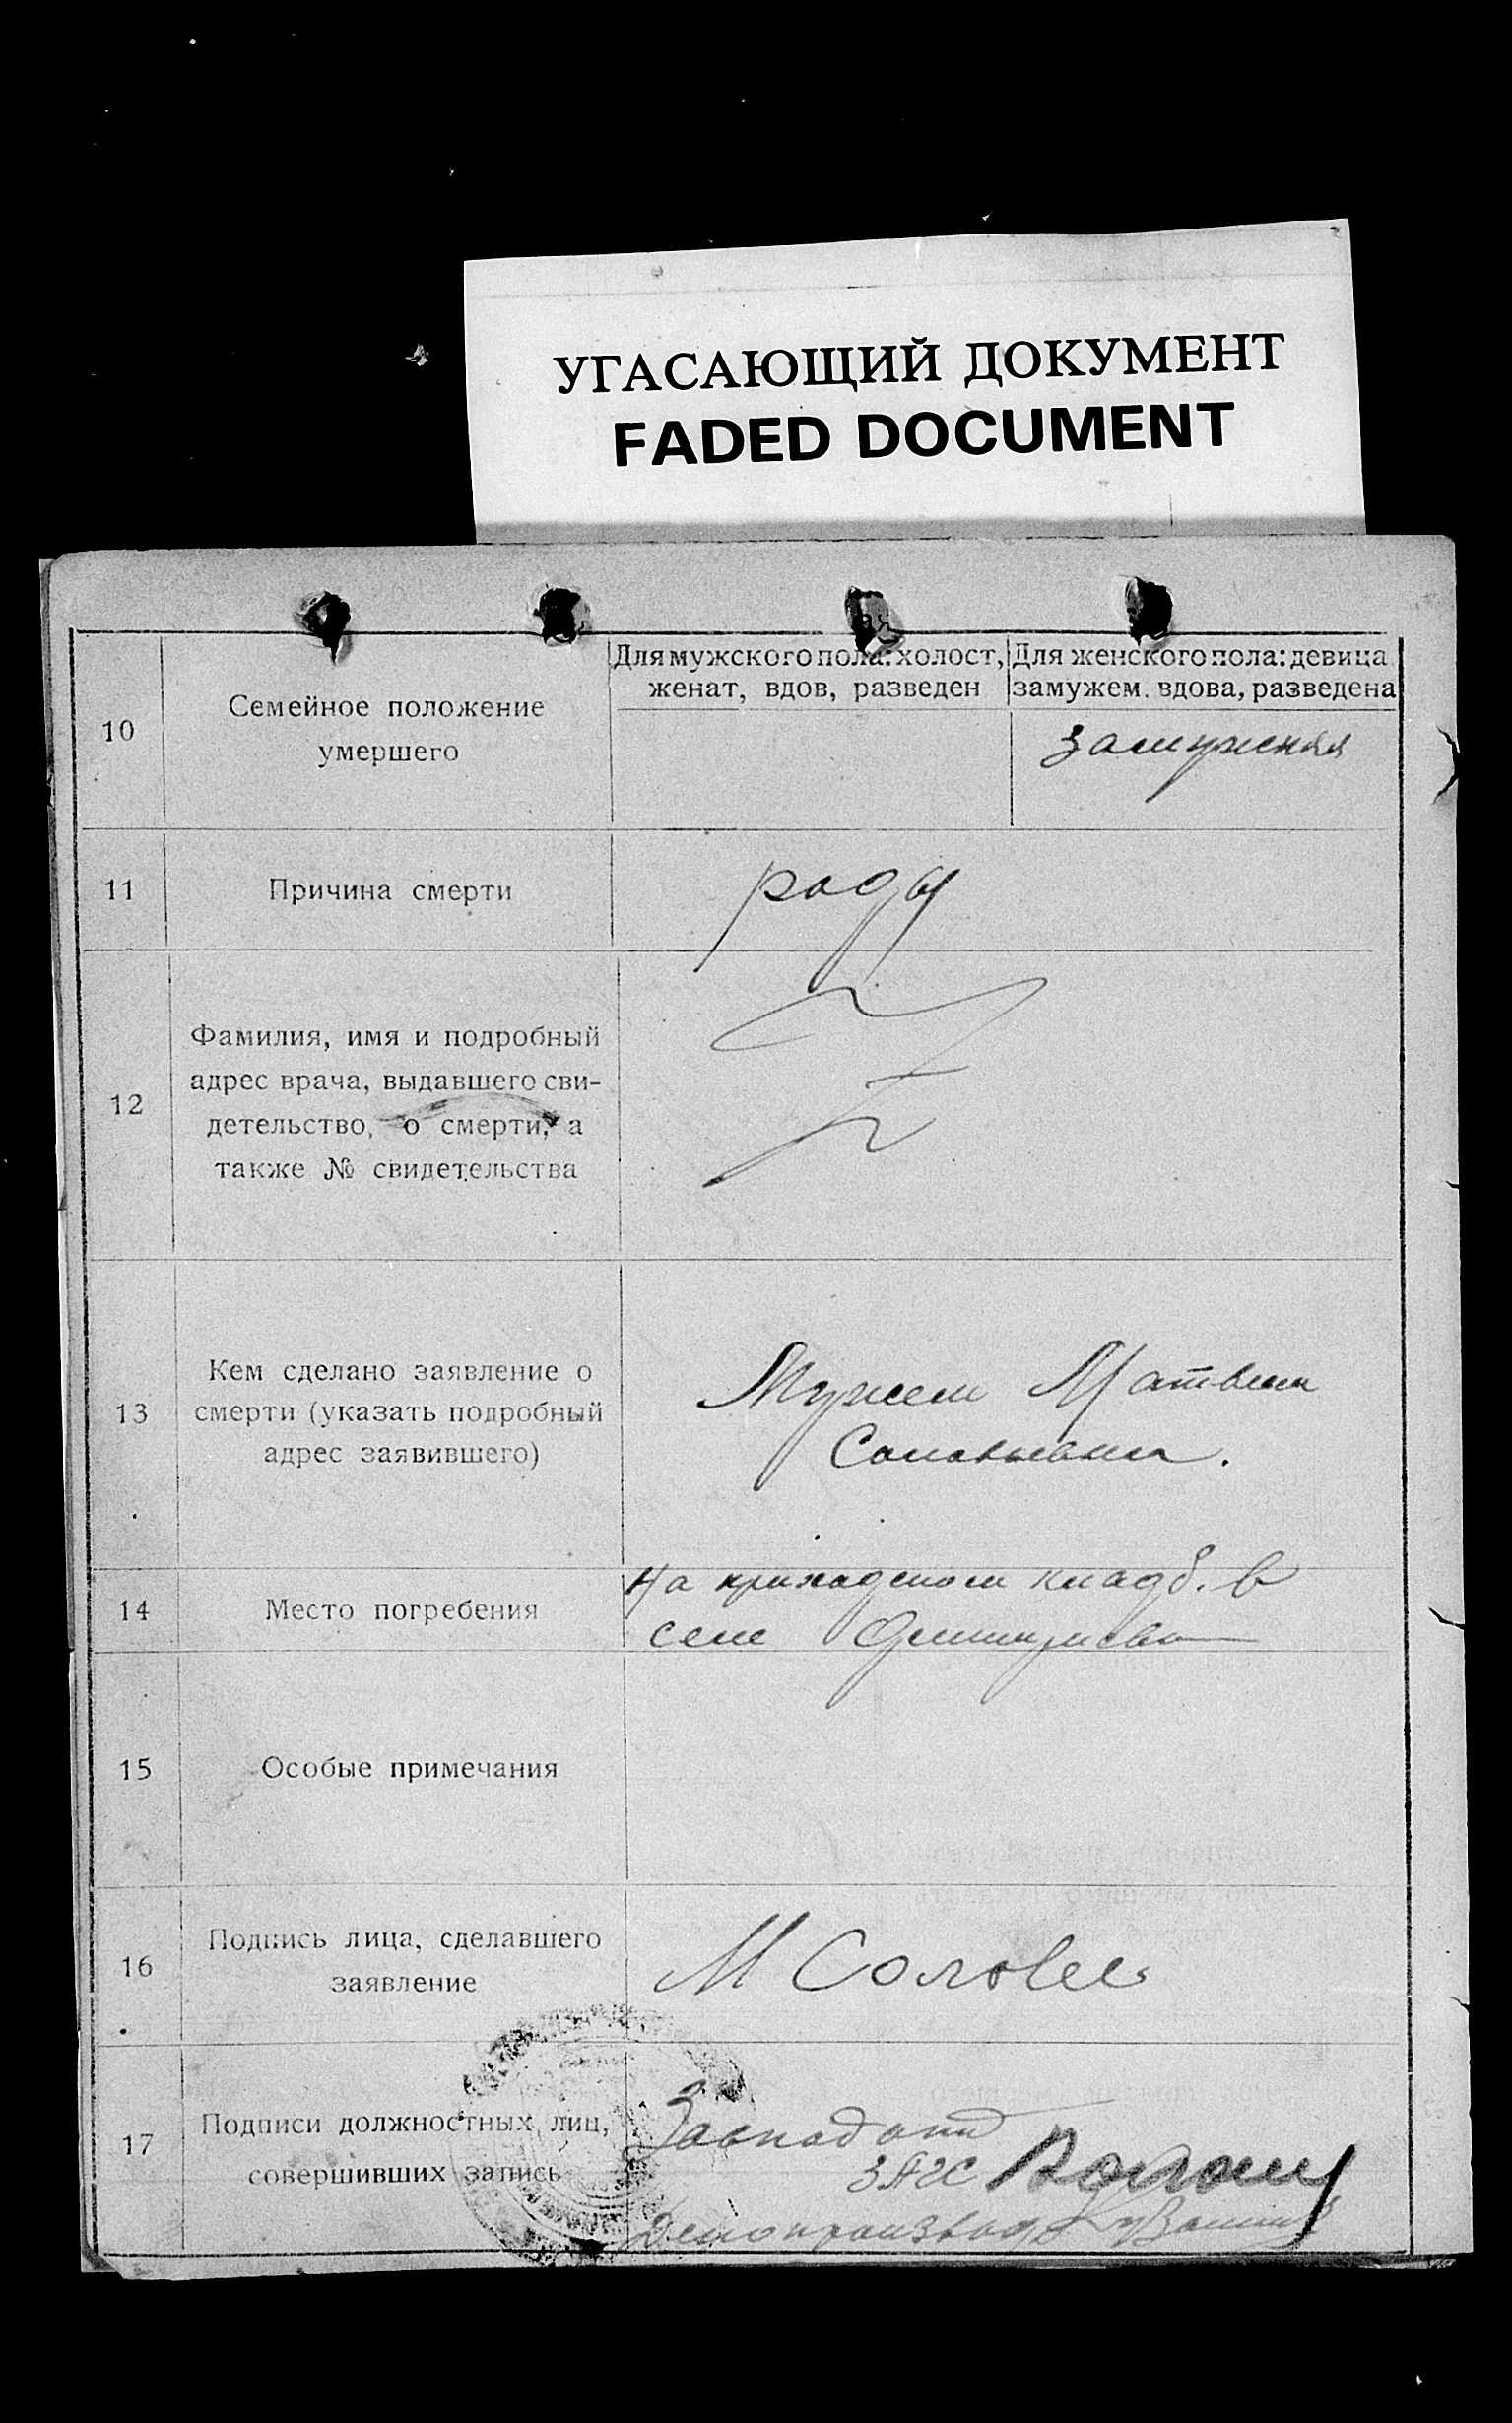 УГАСАЮЩИЙ ДОКУМЕНТ
FADED DOCUMENT
10
Семейное положение
умершего
Для мужского пола: холост,
женат, вдов, разведен
Для женского пола: девица
замужем, вдова, разведена
замужняя
11
Причина смерти
роды
12
Фамилия, имя и подробный
адрес врача, выдавшего сви-
детельство, о смерти, а
также № свидетельства
13
Кем сделано заявление о
смерти (указать подробный
адрес заявившего)
Мужем Матвеем
Соловьевым.
14
Место погребения
На приходском кладб. в
селе
15
Особые примечания
16
Подпись лица, сделавшего
заявление
М Соловев
17
Подписи должностных лиц,
совершивших запись
Завподотд
ЗАГС
Делопроизвод